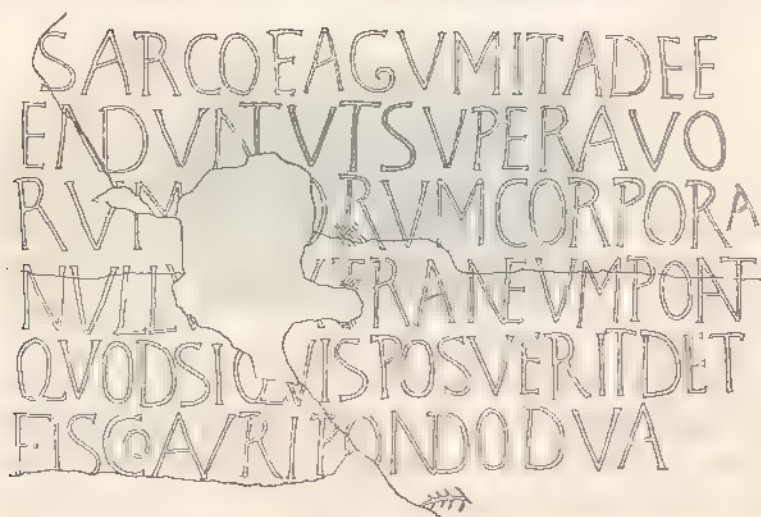 SARCOEAGVMITADEE
ENDVNTVTSVPERAVO
RVTM ORVMCORPORA
NVLLV XTERANEVMPONAT
QVODSIQVISPOSVERITDET
FISCOAVRIPONDODVA